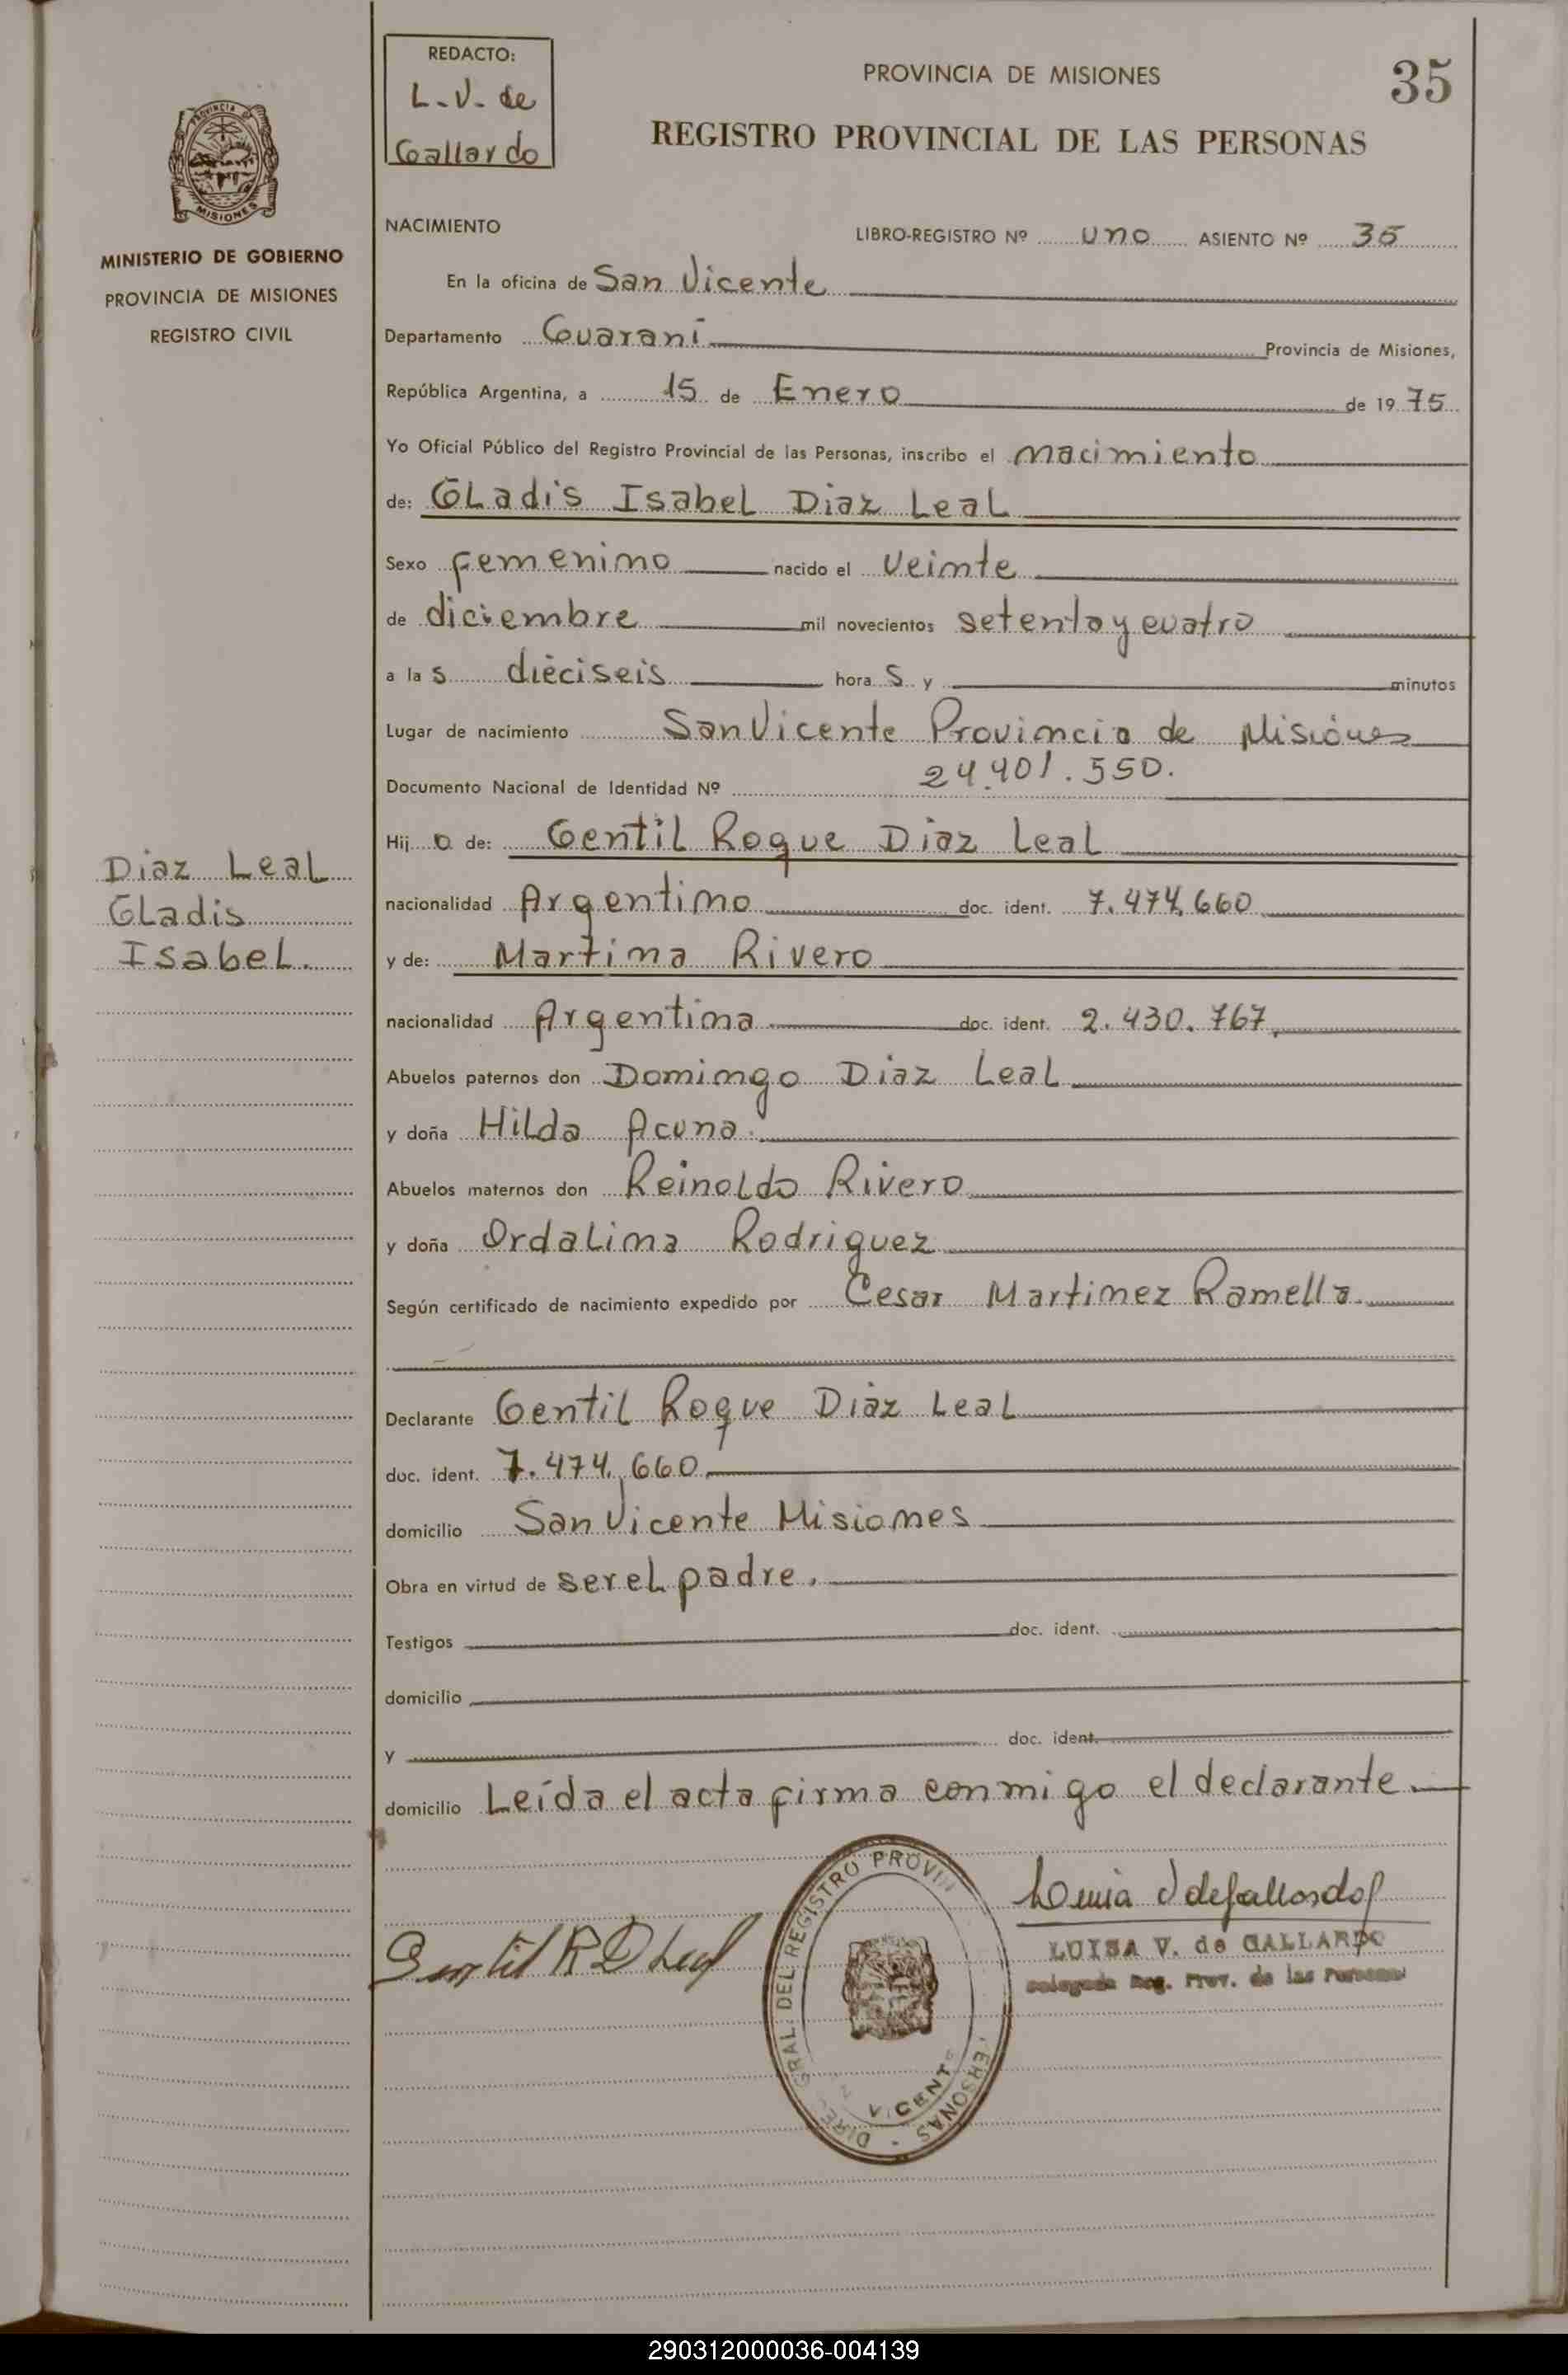 REDACTO:
L.V. de
Gallardo
PROVINCIA DE MISIONES
35
REGISTRO PROVINCIAL DE LAS PERSONAS
PROVINCIA
MISIONES
MINISTERIO DE GOBIERNO
PROVINCIA DE MISIONES
REGISTRO CIVIL
NACIMIENTO
LIBRO-REGISTRO Nº uno ASIENTO Nº 35
En la oficina de San Vicente
Departamento Guaraní Provincia de Misiones,
República Argentina, a 15 de Enero de 1975
Yo Oficial Público del Registro Provincial de las Personas, inscribo el nacimiento
de: Gladis Isabel Diaz Leal
Sexo femenino nacido el veinte
de diciembre mil novecientos setenta y cuatro
a las dieciseis horas y minutos
Lugar de nacimiento San Vicente Provincia de Misiones
Documento Nacional de Identidad Nº 24.401.550.
Hija de: Gentil Roque Diaz Leal
nacionalidad Argentino doc. ident. 7.474.660
y de: Martina Rivero
nacionalidad Argentina doc. ident. 2.430.767.
Abuelos paternos don Domingo Diaz Leal
y doña Hilda Acuna.
Abuelos maternos don Reinoldo Rivero
y doña Ordalina Rodriguez
Según certificado de nacimiento expedido por Cesar Martinez Ramella.
Declarante Gentil Roque Diaz Leal
doc. ident. 7.474.660
domicilio San Vicente Misiones
Obra en virtud de ser el padre.
Testigos doc. ident.
domicilio
y doc. ident.
domicilio Leída el acta firma conmigo el declarante.
Diaz Leal
Gladis
Isabel.
Gentil R D Leal
GRAL. DEL REGISTRO PROVIN
PERSONAS
VICENTE
LUISA V. de GALLARDO
Delegada Reg. Prov. de las Personas
290312000036-004139